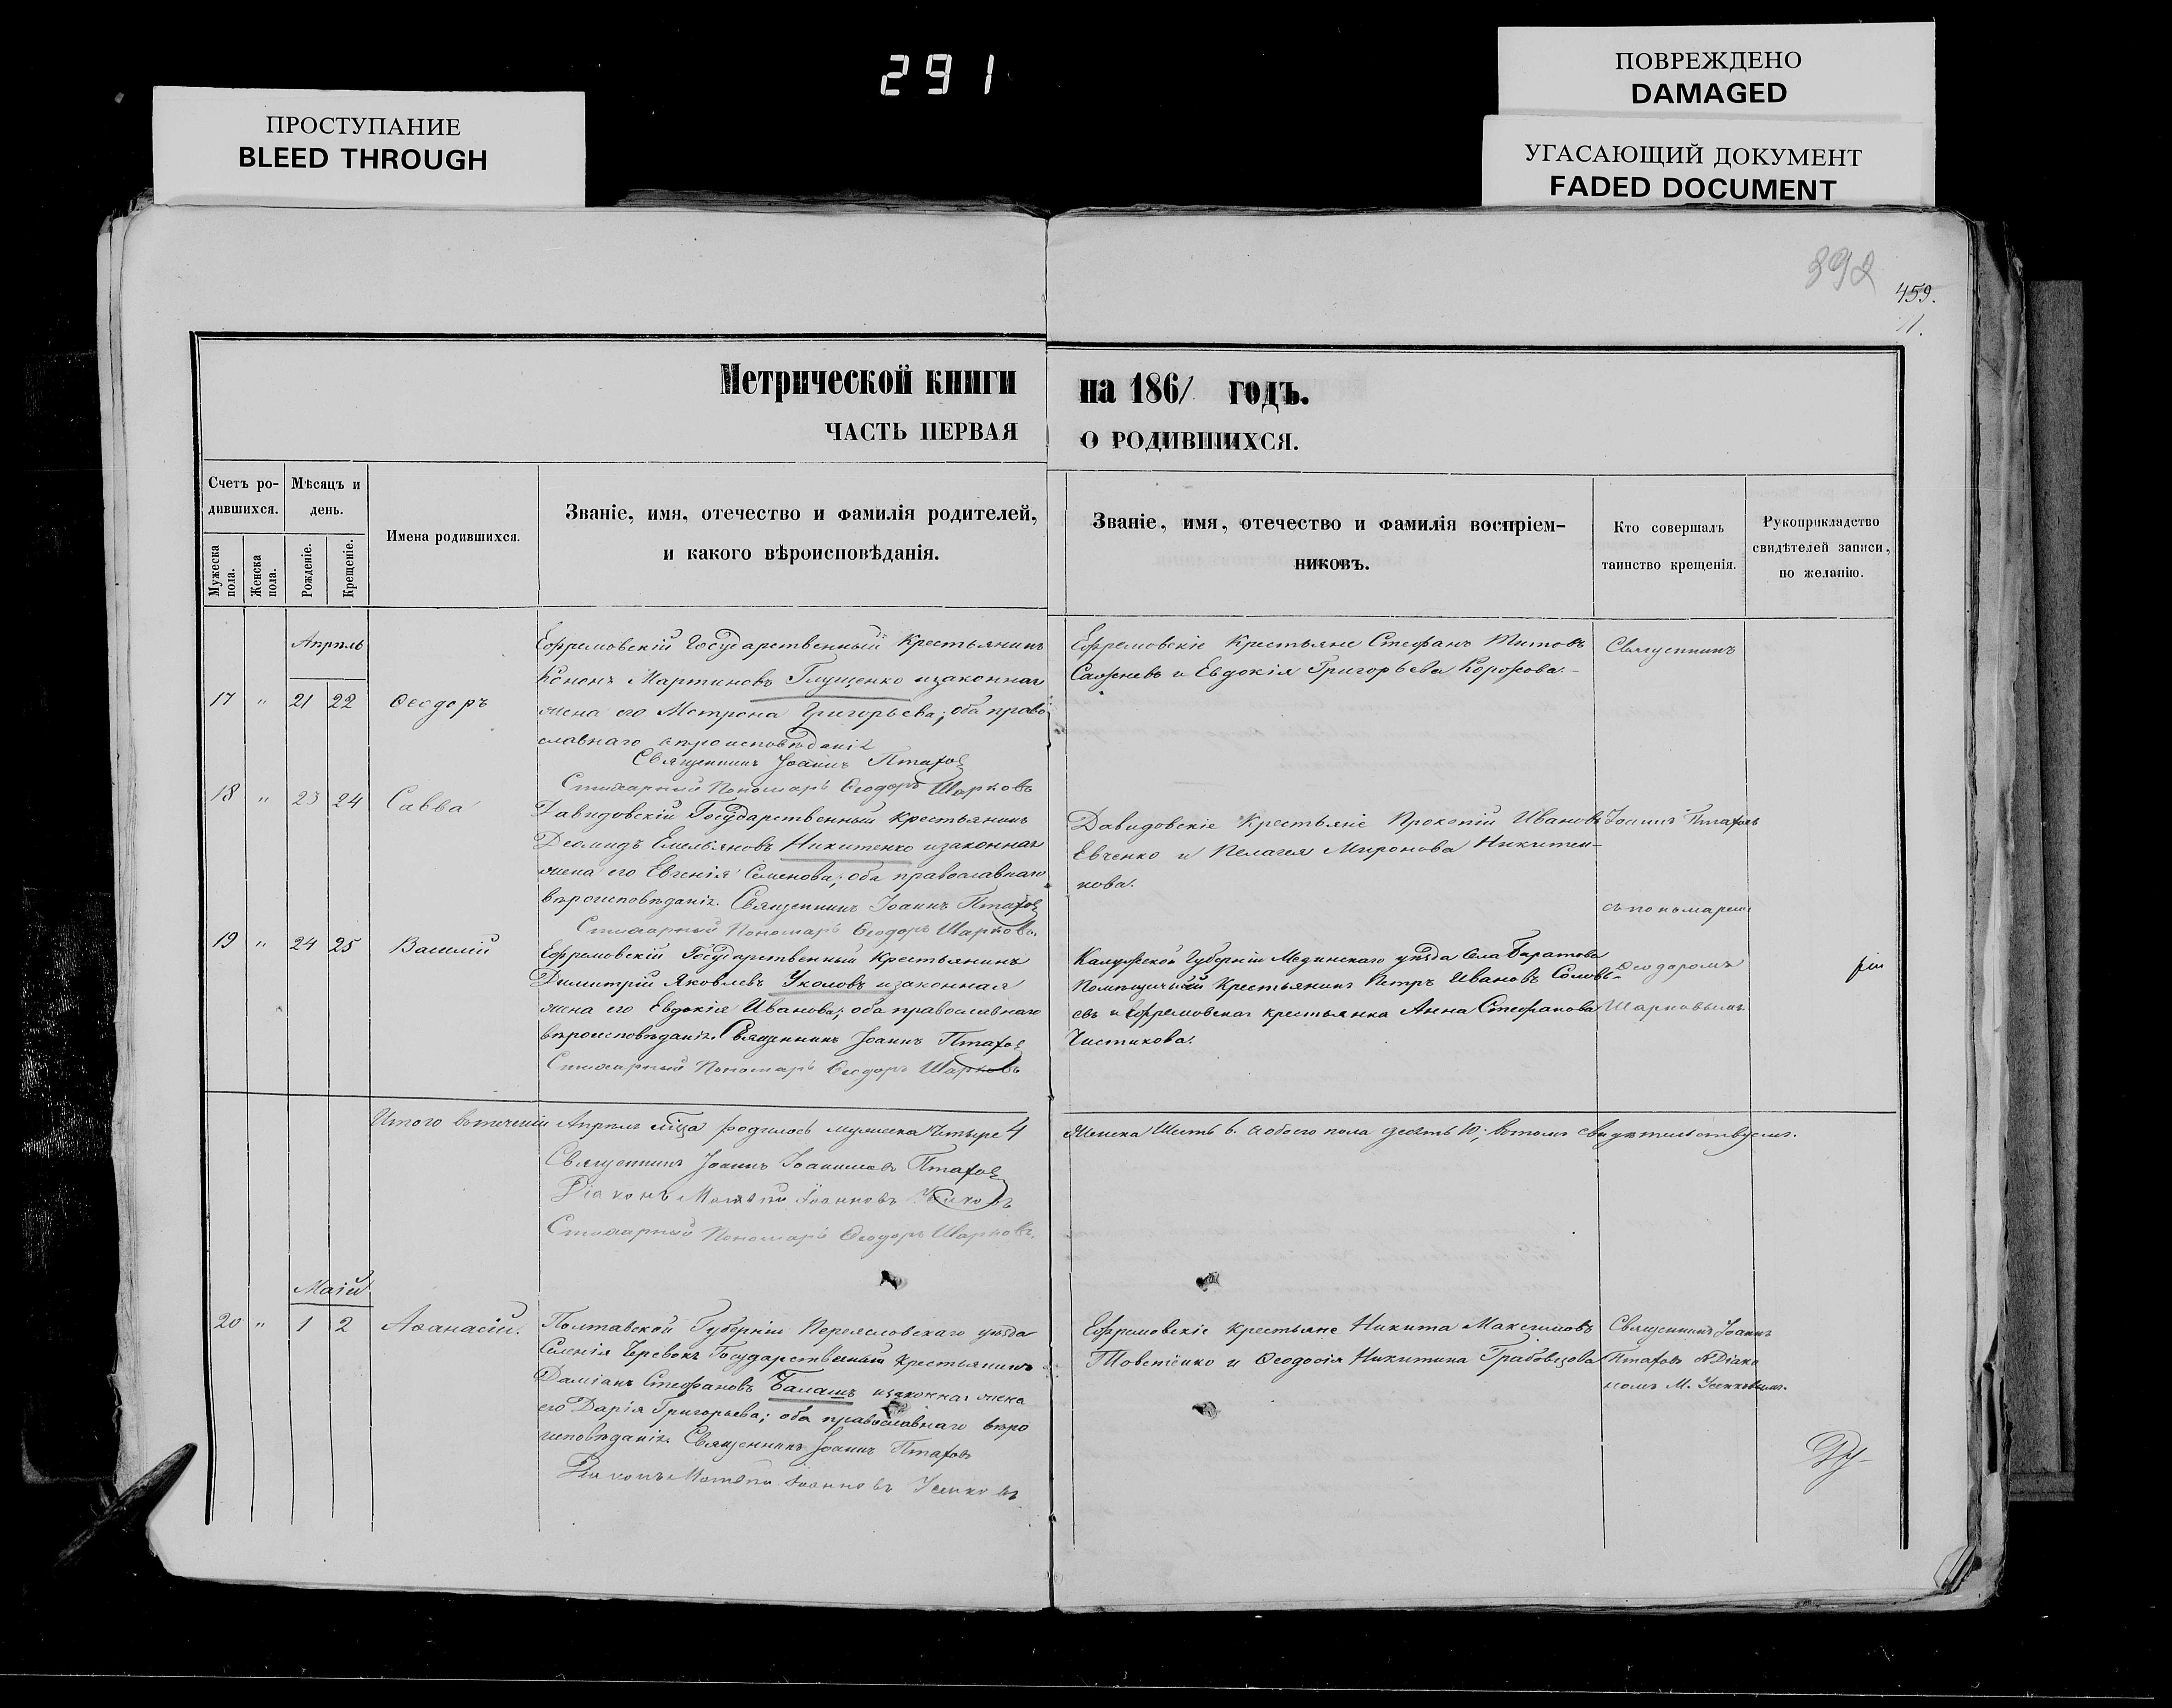 291
ПРОСТУПАНИЕ
BLEED THROUGH
ПОВРЕЖДЕНО
DAMAGED
УГАСАЮЩИЙ ДОКУМЕНТ
FADED DOCUMENT
392
459.
Метрической книги на 1861 годъ.
ЧАСТЬ ПЕРВАЯ О РОДИВШИХСЯ.
Счетъ ро-
дившихся.
Мужеска пола.
Женска пола.
Мѣсяцъ и
день.
Рожденіе.
Крещеніе.
Имена родившихся.
Званіе, имя, отечество и фамилія родителей,
и какого вѣроисповѣданія.
Званіе, имя, отечество и фамилія воспріем-
никовъ.
Кто совершалъ
таинство крещенія.
Рукоприкладство
свидѣтелей записи,
по желанію.
Апрѣль
17 " 21 22 Ѳеодоръ
Ефремовскій Государственный Крестьянинъ
Кононъ Мартиновъ Глущенко изаконная
жена его Матрона Григорьева; оба право
славнаго вѣроисповѣданія
Священникъ Іоаннъ Птахов
Стихарный Пономарь Ѳеодоръ Шарковъ
Ефремовскіе Крестьяне Стефанъ Титовъ
и Евдокія Григорьева
Священникъ
18 " 23 24 Савва
Давидовскій Государственный Крестьянинъ
Деомидъ Емельяновъ Никитенко изаконная
жена его Евгенія Семенова; оба православнаго
вѣроисповѣданія. Священникъ Іоаннъ Птахов
Стихарный Пономарь Ѳеодоръ Шарковъ.
Давидовскіе Крестьяне Прокопій Ивановъ
Евченко и Пелагея Миронова Никитен-
кова.
Іоаннъ Птаховъ
съ пономаремъ
19 " 24 25 Василій
Ефремовскій Государственный Крестьянинъ
Димитрій Яковлевъ Уколовъ изаконная
жена его Евдокія Иванова; оба православнаго
вѣроисповѣданія. Священникъ Іоаннъ Птахов
Стихарный Пономарь Ѳеодоръ Шарковъ
Калужской Губерніи Медынскаго уѣзда Села
Помѣщичьий Крестьянинъ Петръ Ивановъ Соловь-
евъ и Ефремовская крестьянка Анна Стефанова
Чистикова.
Ѳеодоромъ
Шарковымъ
Итого втеченіи Апрѣля мѣсца родилось мужеска Четыре 4
Женска Шесть 6. аобоего пола десять 10; вътомъ свидѣтельствуемъ.
Священникъ Іоаннъ Іоанновъ Птахов
Діаконъ Матѳій Іоанновъ
Стихарный Пономарь Ѳеодоръ Шарковъ.
Маій
20 " 1 2 Аѳанасій.
Полтавской Губерніи Переясловскаго уѣзда
Селенія Государственный крестьянинъ
Даміанъ Стефановъ Балашъ изаконная жена
его Дарія Григорьева; оба православнаго вѣро
исповѣданія. Священникъ Іоаннъ Птаховъ
Діаконъ Матѳій Іоанновъ Усенковъ
Ефремовскіе крестьяне Никита Максимовъ
Товстенко и Ѳеодосія Никитина
Священникъ Іоаннъ
Птаховъ Діако
номъ М. Усенковымъ.